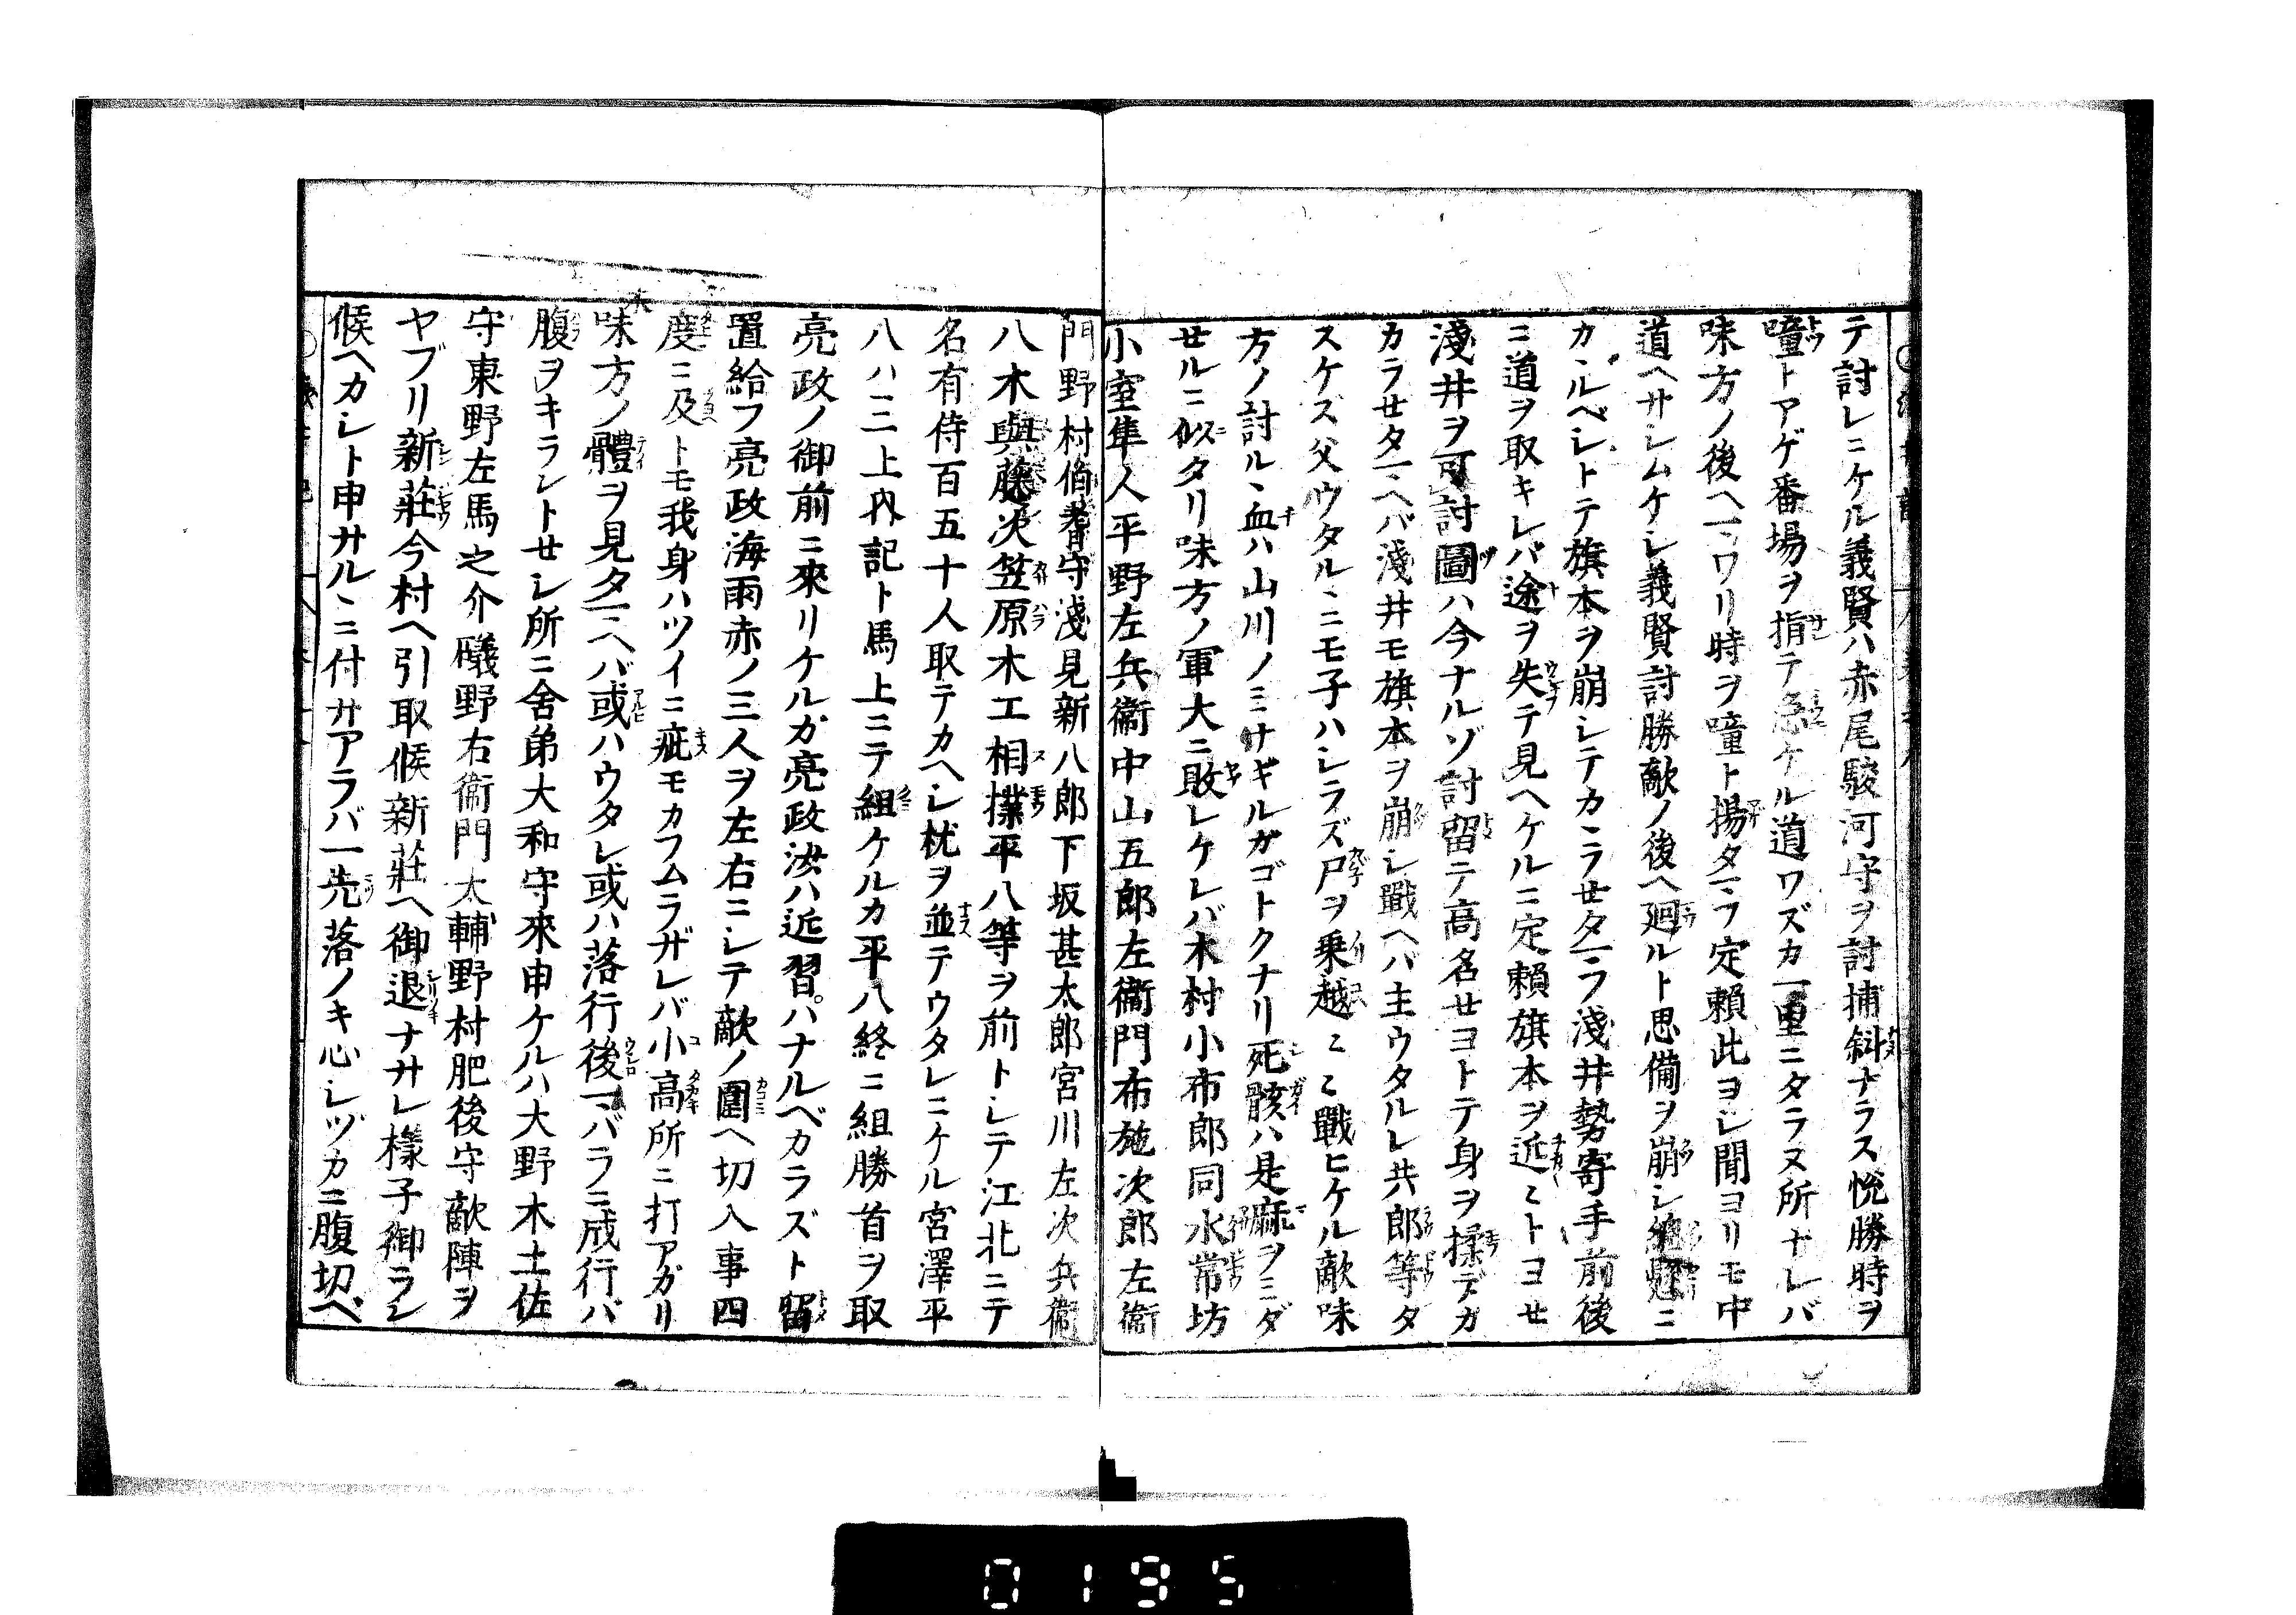 テ討レニケル義賢ハ赤尾駿河守ヲ討捕斜ナラス悦勝時ヲ
噇トアゲ番場ヲ指テ急ケル道ワズカ一重ニタラヌ所ナレバ
味方ノ後ヘマワリ時ヲ噇ト揚タマフ定頼此ヨレ聞ヨリモ中
道ヘサレムケレ義賢討勝敵ノ後ヘ廻ルト思備ヲ崩レ懸ニ
カヽルベレトテ旗本ヲ崩レテカヽラせタマフ淺井勢寄手前後
ニ道ヲ取キレバ途ヲ失テ見ヘケルニ定頼旗本ヲ近〻トヨせ
淺井ヲ可討圖ハ今ナルゾ討留テ高名せヨトテ身ヲ揉デカ
カラせタマヘバ淺井モ旗本ヲ崩レ戰ヘバ主ウタルレ共郎等タ
スケス父ウタルヽニモ子ハレラズ尸ヲ乗越〻〻戰ヒケル敵味
方ノ討ルヽ血ハ山川ノミサギルガゴトクナリ死骸ハ是麻ヲミダ
せルニ似タリ味方ノ軍大ニ敗レケレバ木村小布郎同水常坊
小室隼人平野左兵衞中山五郎左衞門布施次郎左衞
門野村伯耆守淺見新八郎下坂甚太郎宮川左次兵衞
八木與藤次笠原木工相撲平八等ヲ前トレテ江北ニテ
名有侍百五十人取テカヘレ枕ヲ並テウタレニケル宮澤平
八ハ三上内記ト馬上ニテ組ケルカ平八終ニ組勝首ヲ取
亮政ノ御前ニ來リケルガ亮政汝ハ近習ハナルベカラズト留
置給フ亮政海雨赤ノ三人ヲ左右ニレテ敵ノ圍ヘ切入事四
度ニ及トモ我身ハツイニ疵モカフムラザレバ小高所ニ打アガリ
味方ノ體ヲ見タマヘバ或ハウタレ或ハ落行後マバラニ成行バ
腹ヲキラレトせレ所ニ舍弟大和守來申ケルハ大野木土佐
守東野左馬之介礒野右衞門太輔野村肥後守敵陣ヲ
ヤブリ新莊今村ヘ引取候新莊ヘ御退ナサレ様子御ラレ
候ヘカレト申サルヽニ付サアラバ一先落ノキ心レヅカニ腹切ベ